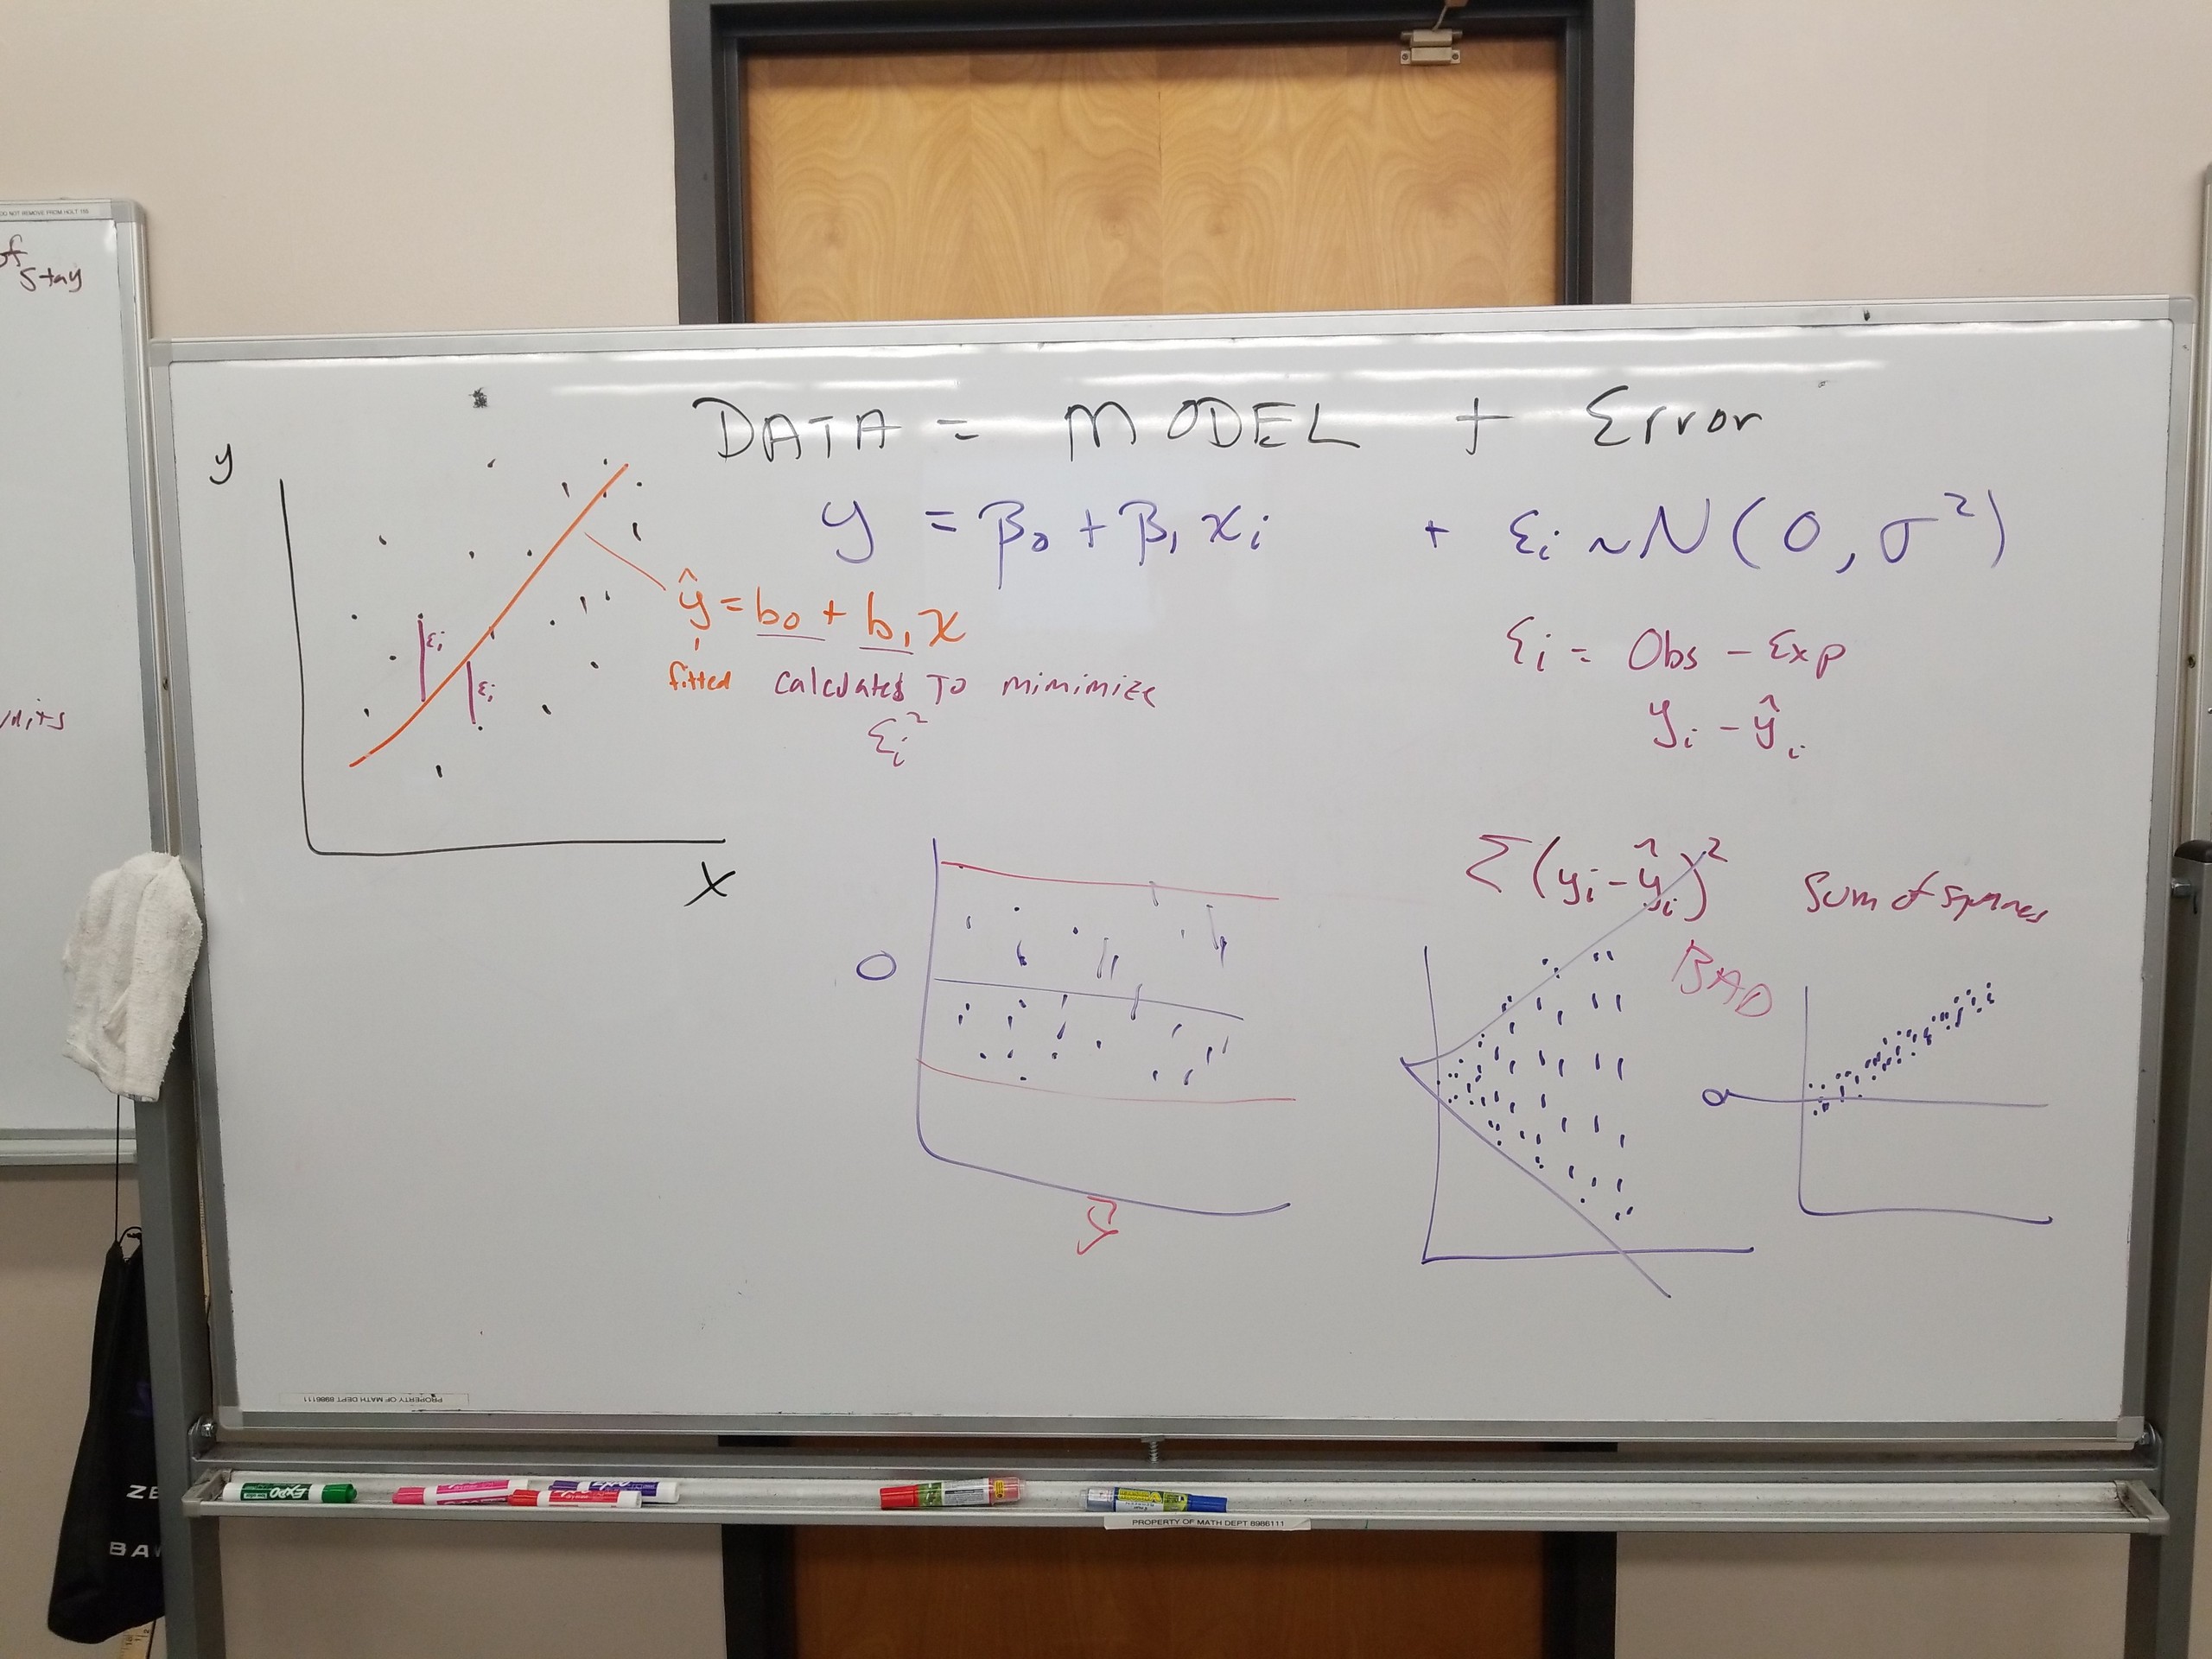 DO NOT REMOVE FROM HOLT 155
of
Stay
DATA = MODEL + Error
y = β₀ + β₁ xᵢ + εᵢ ~ N(0, σ²)
y
ŷ = b₀ + b₁ x
fitted calculated to mimimize
εᵢ²
εᵢ
εᵢ
x
εᵢ = Obs - Exp
yᵢ - ŷᵢ
Σ(yᵢ - ŷᵢ)²
Sum of squares
BAD
0
ŷ
0
PROPERTY OF MATH DEPT 8986111
EXPO
PROPERTY OF MATH DEPT 8986111